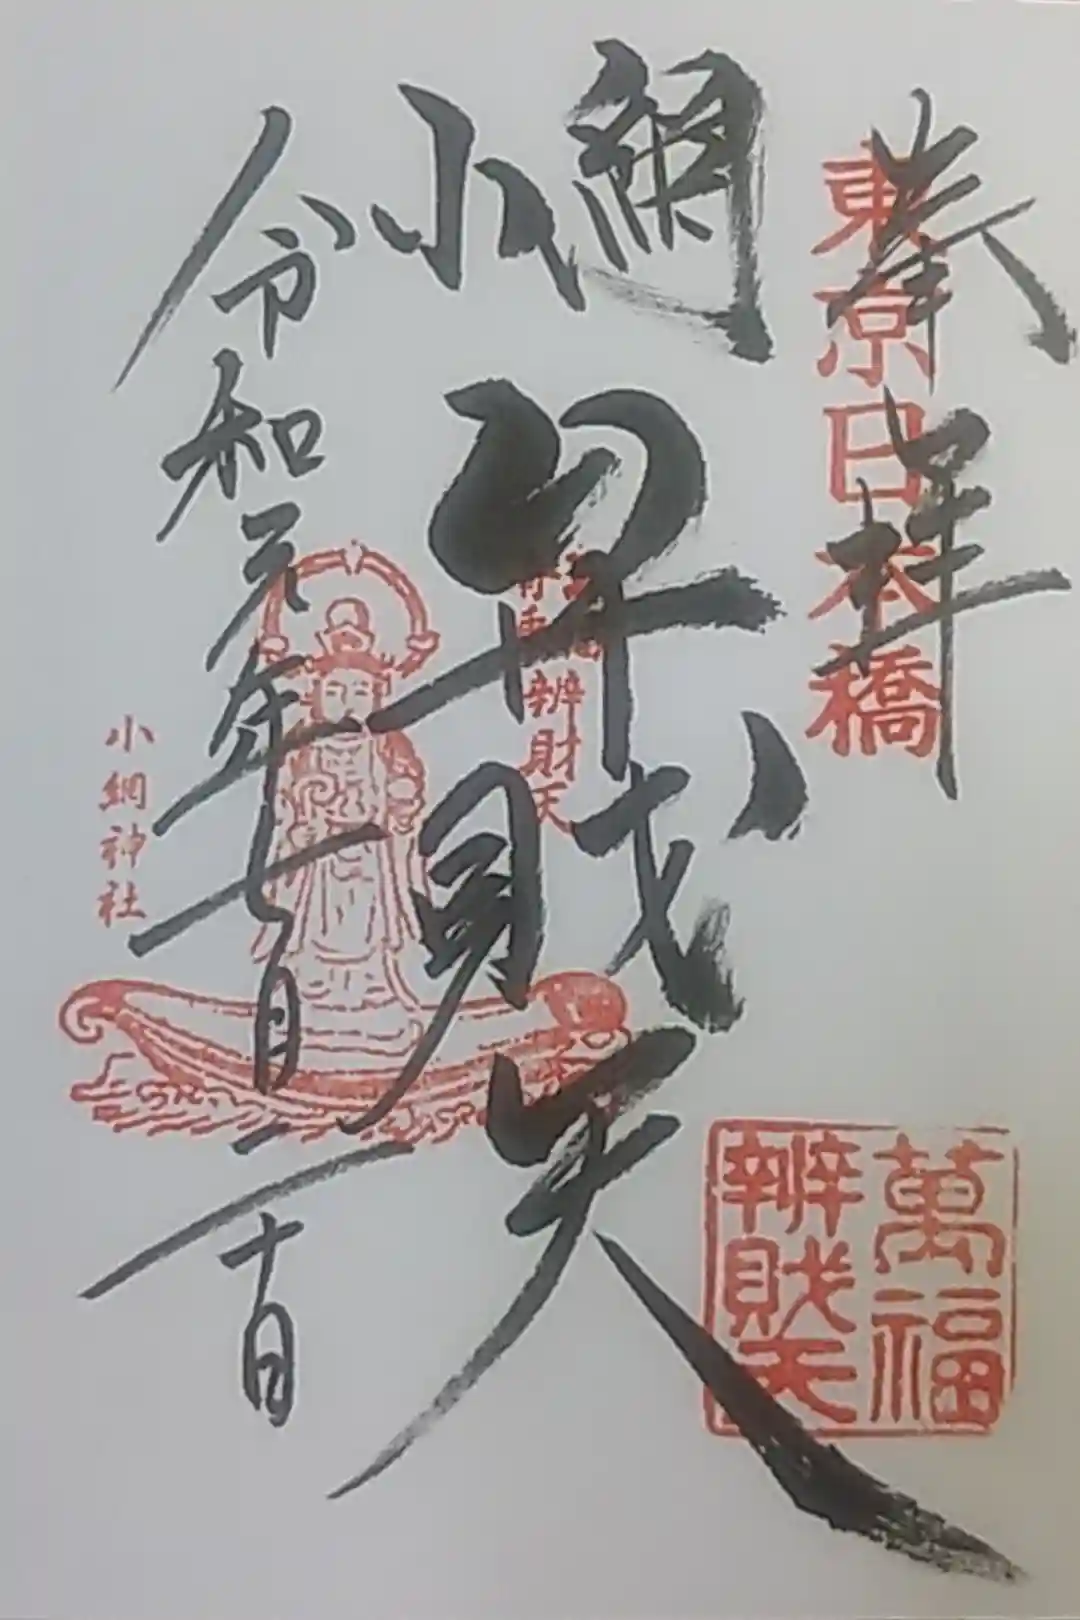 奉拝
東京日本橋
小網
弁財天
萬福
辨財天
辨財天
令和元年七月二十日
小網神社